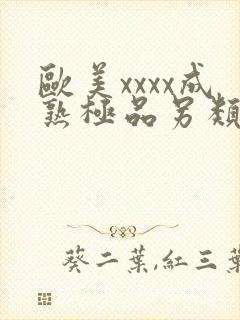 歐美xxxx成
熟極品另類
葵二葉,紅三葉